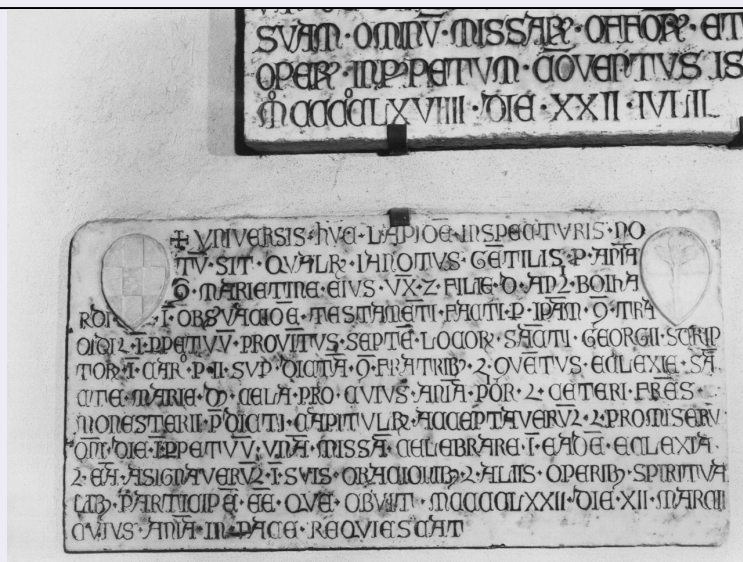 SVAM · OMNIV̄ · MISSAR · OFFOR · ET
OPER · INPPETVM · CŌVEPTVS IS
M̊CCCCLXVIIII · DIE · XXII · IVLII
✠ VNIVERSIS · hVC · LAPIDĒ · INSPECTVRIS · NO
TV̄ · SIT · QVALR · IANOITVS · GĒTILIS · P · AN̄A
MARIETINE · EIVS · VX · Z · FILIE · D · BOIHA
I · OBSVACIOĒ · TESTAMĒTI · FACTI · P · IPAM̄ · TRA
PPETVV̄ · PROVĪTVS · SEPTĒ · LOCOR · SĀCTI · GEORGII · SCRIP
TOR · Ī · CAR̄ · P · II · SVP̄ · DICTĀ · FRATRIB · 2 · QVĒTVS · ECLEXIE · SĀ
CTE · MARIE · D · CELA · PRO · CVIVS · AN̄IA · P̄OR · 2 · CETERI · FR̄ES ·
MONESTERII · P̄DICTI · CAPITVLR · ACCEPTAVERV̄2 · 2 · PROMISERV̄
DIE · IPPETVV̄ · VNĀ · MISSĀ · CELEBRARE · Ī · EADĒ · ECLEXIA ·
2 · EĀ · ASIGNAVERV̄2 · Ī · SVIS · ORACIOIIB · 2 · ALIIS · OPERIB · SPIRITVA
LIB · PARTICIPĒ · ĒE · QVE · OBVIIT · MCCCCLXXII · DIE · XII · MARCII
CVIVS · AN̄IA · IN · PACE · REQVIESCAT